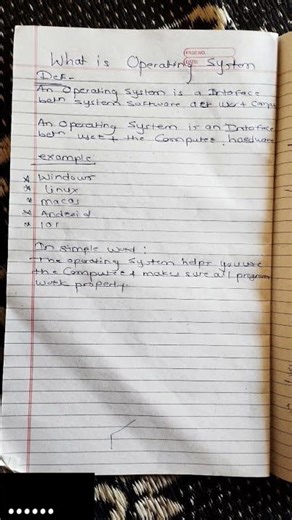 What is Operating System
PAGE NO.
Def:-
An Operating System is a Interface
betn System Software
An Operating System is an Interface
betn, user & the Computer, hardware
example
* Windows
* linux
* macos
* Android
* ios
In simple word :
The operating system helps you use
the Computer & makes sure all program
work properly.